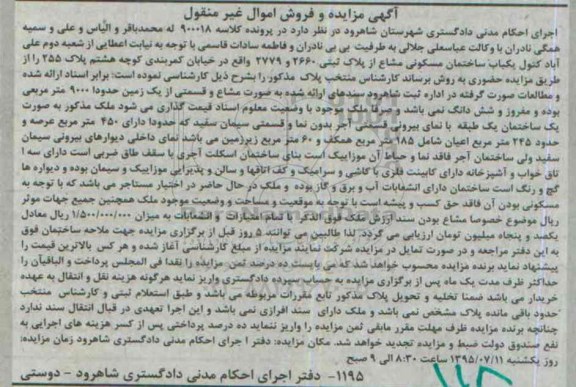 آگهی مزایده و فروش اموال غیر منقول
اجرای احکام مدنی دادگستری شهرستان شاهرود در نظر دارد در پرونده کلاسه ۹۰۰۰۱۸ له محمدباقر و الیاس و علی و سمیه
همگی نادران با وکالت عباسعلی جلالی به طرفیت بی بی نادران و فاطمه سادات قاسمی با توجه به نیابت اعطایی از شعبه دوم علی
آباد کتول یکباب ساختمان مسکونی مشاع از پلاک ثبتی ۲۶۶۰ و ۲۷۷۹ واقع در خیابان کمربندی کوچه هشتم پلاک ۲۵۵ را از
طریق مزایده حضوری به روش برساند کارشناس منتخب پلاک مذکور را بشرح ذیل کارشناسی نموده است: برابر اسناد ارائه شده
و مطالعات صورت گرفته در اداره ثبت شاهرود سندهای ارائه شده به صورت مشاع و قسمتی از یک زمین حدودا ۹۰۰۰ متر مربعی
بوده و مفروز و شش دانگ نمی باشد و صرفا ملک موجود با وضعیت معلوم اسناد قیمت گذاری می شود ملک مذکور به صورت
یک ساختمان یک طبقه با نمای بیرونی قسمتی آجر بدون نما و قسمتی سیمان سفید که حدودا دارای ۴۵۰ متر مربع عرصه و
حدود ۲۴۵ متر مربع اعیان شامل ۱۸۵ متر مربع همکف و ۶۰ متر مربع زیرزمین می باشد نمای داخلی دیوارهای بیرونی سیمان
سفید ولی ساختمان آجر فاقد نما و حیاط آن موزاییک است بنای ساختمان اسکلت آجری با سقف طاق ضربی است دارای سه ا
تاق خواب و آشپزخانه دارای کابینت فلزی با کاشی و سرامیک و کف اتاقها و سالن و پذیرایی موزاییک و سیمان بوده و دیواره ها
گچ و رنگ است ساختمان دارای انشعابات آب و برق و گاز بوده و ملک در حال حاضر در اختیار مستاجر می باشد که با توجه به
مسکونی بودن آن فاقد حق کسب و پیشه است با توجه به موقعیت و مساحت و وضعیت موجود ملک همچنین جمیع جهات موثر
ریال موضوع خصوصا مشاع بودن سند ارزش ملک فوق الذکر با تمام امتیازات و انشعابات به میزان ۱/۵۰۰/۰۰۰/۰۰۰ ریال معادل
یکصد و پنجاه میلیون تومان ارزیابی می گردد لذا طالبین می توانند ۵ روز قبل از برگزاری مزایده جهت ملاحه ساختمان فوق
به این دفتر مراجعه و در صورت تمایل در مزایده شرکت نمایند مزایده از مبلغ کارشناسی آغاز شده و هر کس بالاترین قیمت را
پیشنهاد نماید برنده مزایده محسوب خواهد شد که می بایست ده درصد ثمن مزایده را نقدا فی المجلس پرداخت و الباقیآن را
حداکثر ظرف مدت یک ماه پس از برگزاری مزایده به حساب سپرده دادگستری واریز نماید هرگونه هزینه نقل و انتقال به عهده
خریدار می باشد ضمنا تخلیه و تحویل پلاک مذکور تابع مقررات مربوطه می باشد و طبق استعلام ثبتی و کارشناس منتخب
حدود باقی مانده پلاک مشخص نمی باشد و ملک دارای سند افرازی نمی باشد و این اجرا تعهدی در قبال انتقال سند ندارد
چنانچه برنده مزایده ظرف مهلت مقرر مابقی ثمن مزایده را واریز ننماید ده درصد پرداختی پس از کسر هزینه های اجرایی به
نفع صندوق دولت ضبط و مزایده تجدید خواهد شد. مکان مزایده: دفتر ا جرای احکام مدنی دادگستری شاهرود زمان مزایده:
روز یکشنبه ۱۳۹۵/۰۷/۱۱ ساعت ۸:۳۰ الی ۹ صبح
۱۱۹۵- دفتر اجرای احکام مدنی دادگستری شاهرود - دوستی